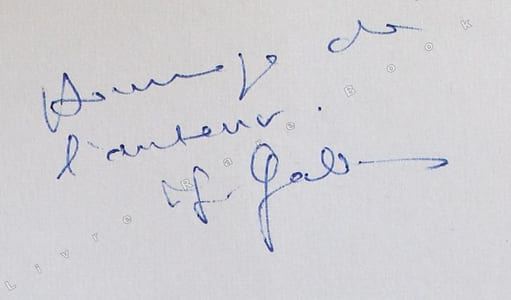 Hommage de
l'auteur.
Livre Rare Book